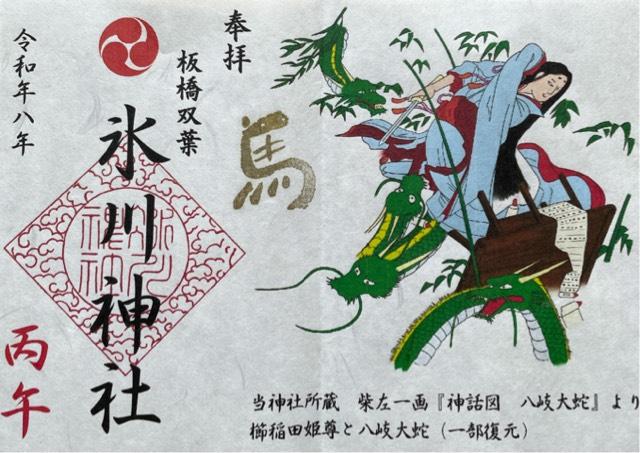 奉拝
板橋双葉
氷川神社
馬
令和年八年
丙午
当神社所蔵　柴左一画『神話図　八岐大蛇』より
櫛稲田姫尊と八岐大蛇（一部復元）